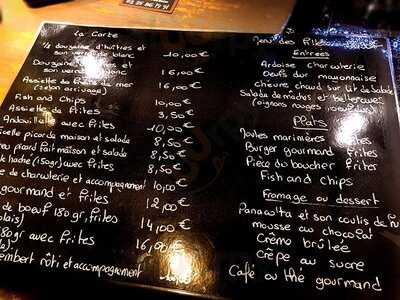 La Carte
½ douzaine d'huîtres et
son verre de blanc 10,00€
Douzaine d'huîtres et
son verre 16,00€
Assiette de la mer 16,00€
(selon arrivage)
Fish and Chips 10,00€
Assiette de frites 3,50€
Andouillette avec frites 10,00€
picarde maison et salade 8,50€
picard fait maison et salade 8,50€
haché (150gr) avec frites 8,50€
de charcuterie et accompagnement 10,00€
gourmand et frites 12,00€
de boeuf 180 gr, frites 14,00€
180 gr avec frites 16,00€
rôti et accompagnement
Entrées
Ardoise charcuterie
Oeufs dur mayonnaise
chèvre chaud sur lit de salade
Salade de
Plats
Moules marinières frites
Burger gourmand frites
Pièce du boucher frites
Fish and chips
Fromage ou dessert
Panacotta et son coulis de
mousse au chocolat
Crème brûlée
crêpe au sucre
Café ou thé gourmand